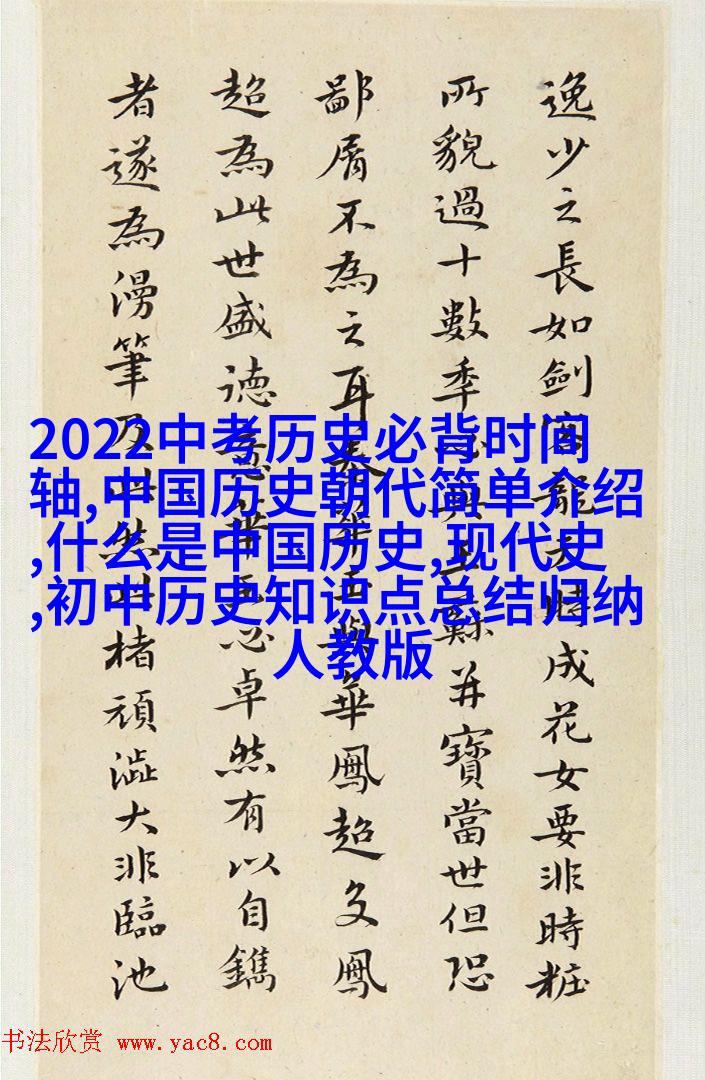 逸少之長如劍客龍天時成花女要非時粧
所貌過十數季與蘇并寶當世但恐
鄙屑不為之耳華鳳超多鳳
超為此世盛德心卓然有以自鐫
者遂為漫筆乃楮頑澁大非臨池
2022中考历史必背时间
轴,中国历史朝代简单介绍
,什么是中国历史,现代史
,初中历史知识点总结归纳
人教版
书法欣赏 www.yac8.com